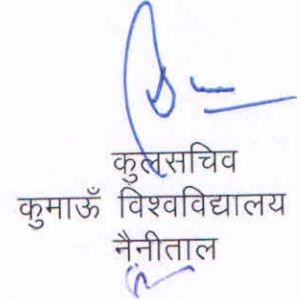 कुलसचिव
कुमाऊँ विश्वविद्यालय
नैनीताल